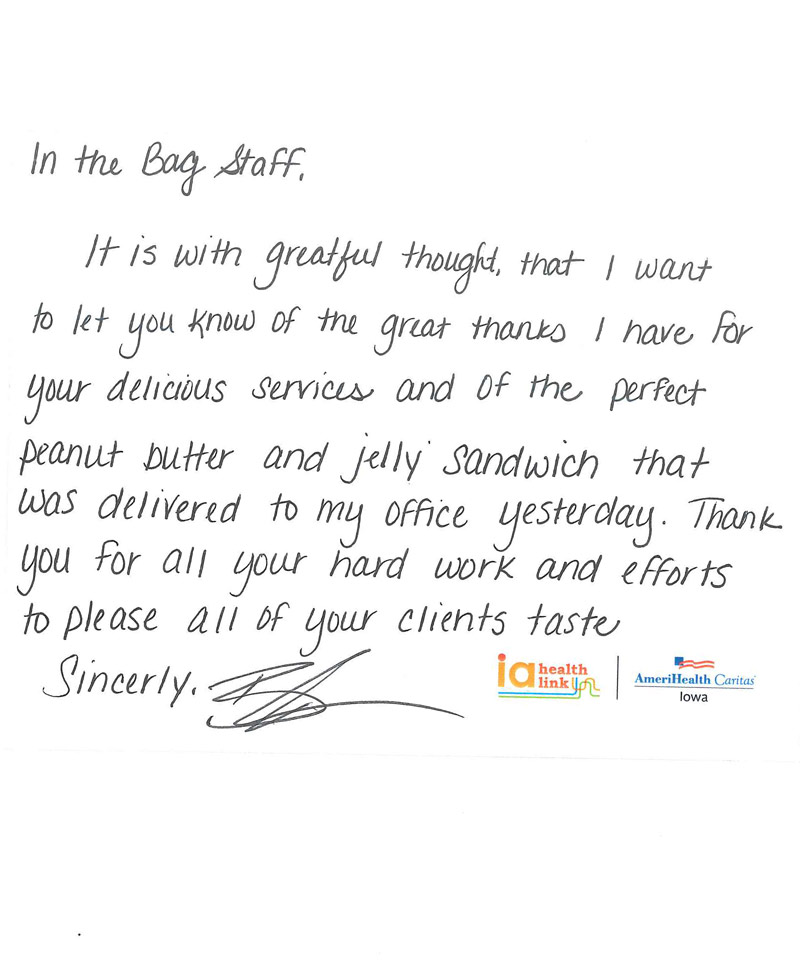 In the Bag Staff,
It is with greatful thought, that I want
to let you know of the great thanks I have for
your delicious services and of the perfect
peanut butter and jelly sandwich that
was delivered to my office yesterday. Thank
you for all your hard work and efforts
to please all of your clients taste
Sincerly,
ia health link
AmeriHealth Caritas
Iowa